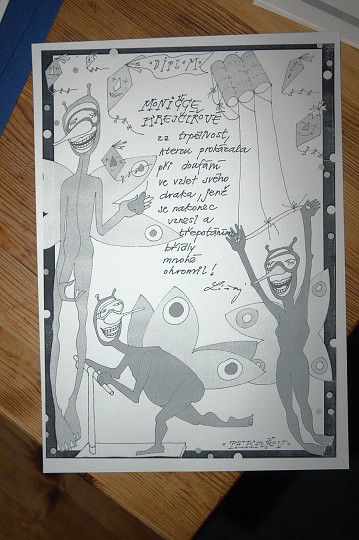 DIPLOM
MONIČCE
KREJČÍKOVÉ
za trpělivost,
kterou prokázala
při doufání
ve vzlet svého
draka, jenž
se nakonec
vznesl a
třepotáním
křídly
mnohé
ohromil!